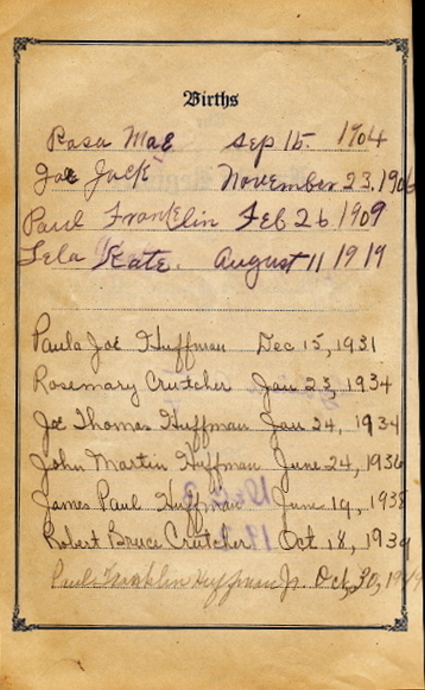 Births
Rosa Mae Sep 15. 1904
Joe Jack November 23. 1906
Paul Franklin Feb 26 1909
Lela Kate. August 11 1919
Paula Joe Huffman Dec 15, 1931
Rosemary Crutcher Jan 23, 1934
Joe Thomas Huffman Jan 24, 1934
John Martin Huffman June 24, 1936
James Paul Huffman June 19, 1938
Robert Bruce Crutcher Oct 18, 1939
Paul Franklin Huffman Jr. Oct, 30,